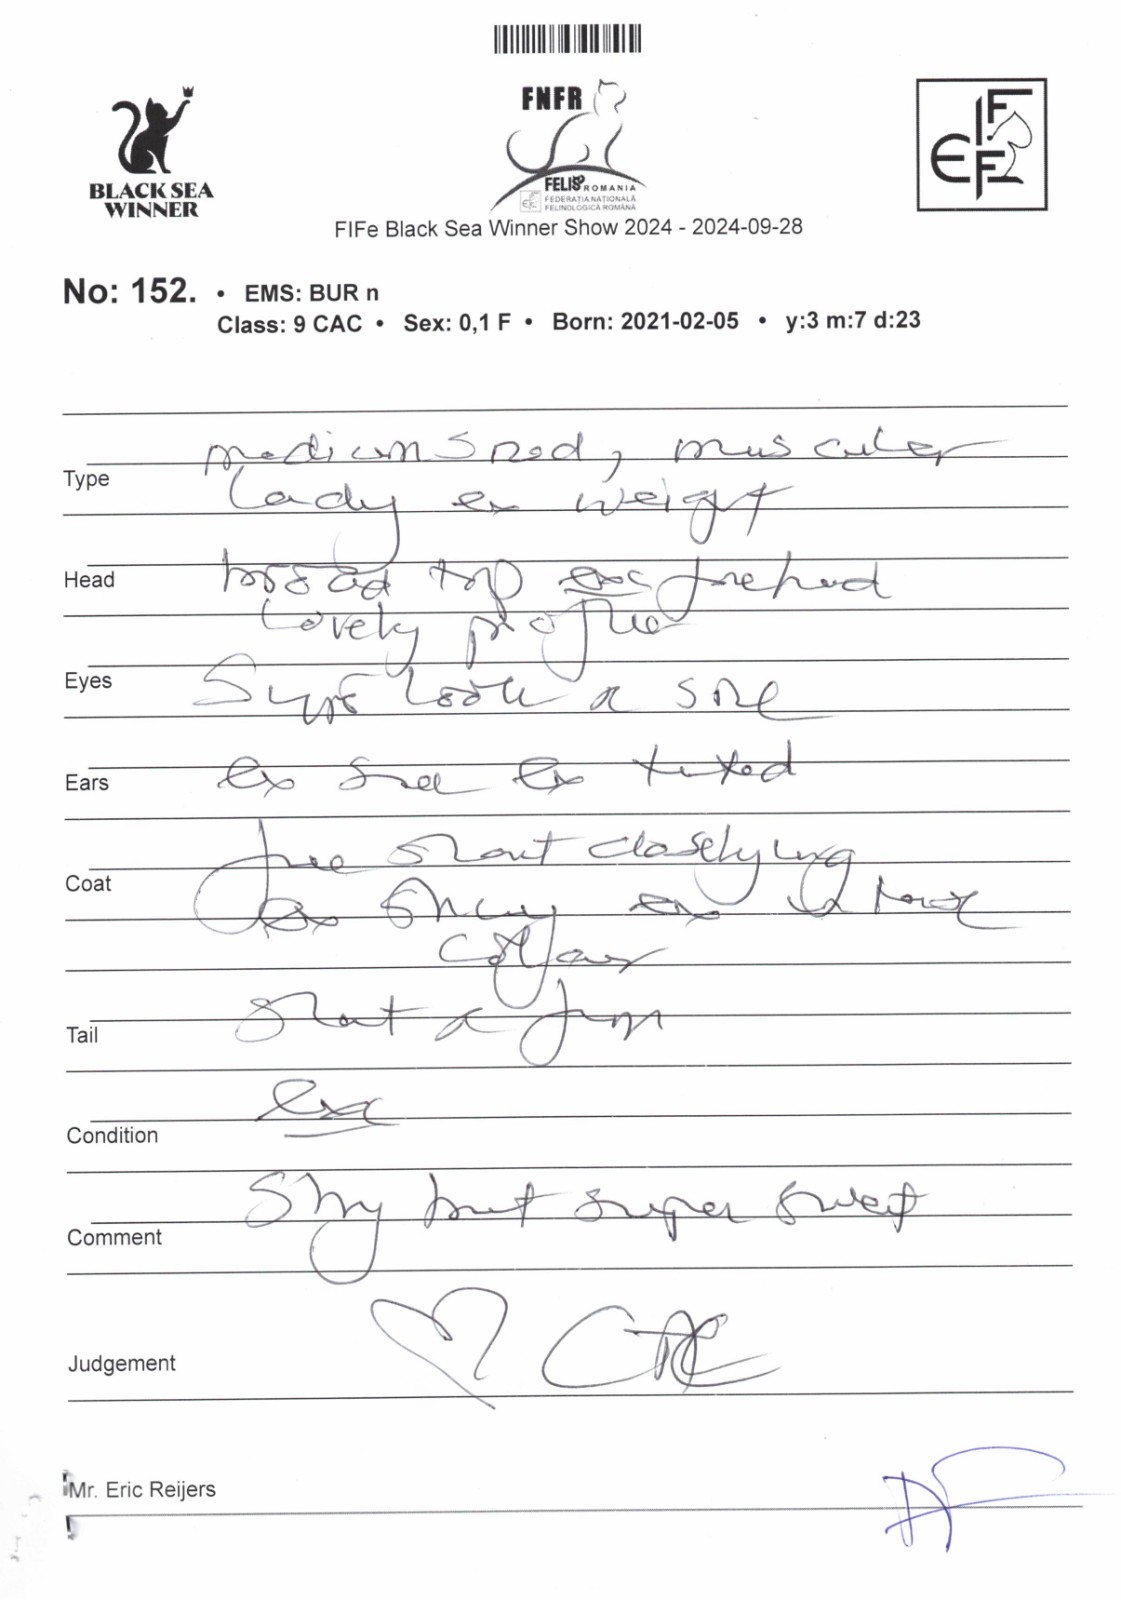 BLACK SEA
WINNER
FNFR
FELIS ROMANIA
FEDERAȚIA NAȚIONALĂ
FELINOLOGICĂ ROMÂNĂ
FIFe
FIFe Black Sea Winner Show 2024 - 2024-09-28
No: 152. • EMS: BUR n
Class: 9 CAC • Sex: 0,1 F • Born: 2021-02-05 • y:3 m:7 d:23
Type
medium sized, muscular
lady ex weight
Head
broad top exc forehead
Lovely profile
Eyes
look
Ears
ex size ex
Coat
fine short closelying
ex shiny ex
colour
Tail
short firm
Condition
exc
Comment
Shy but super sweet
Judgement
CAC
Mr. Eric Reijers